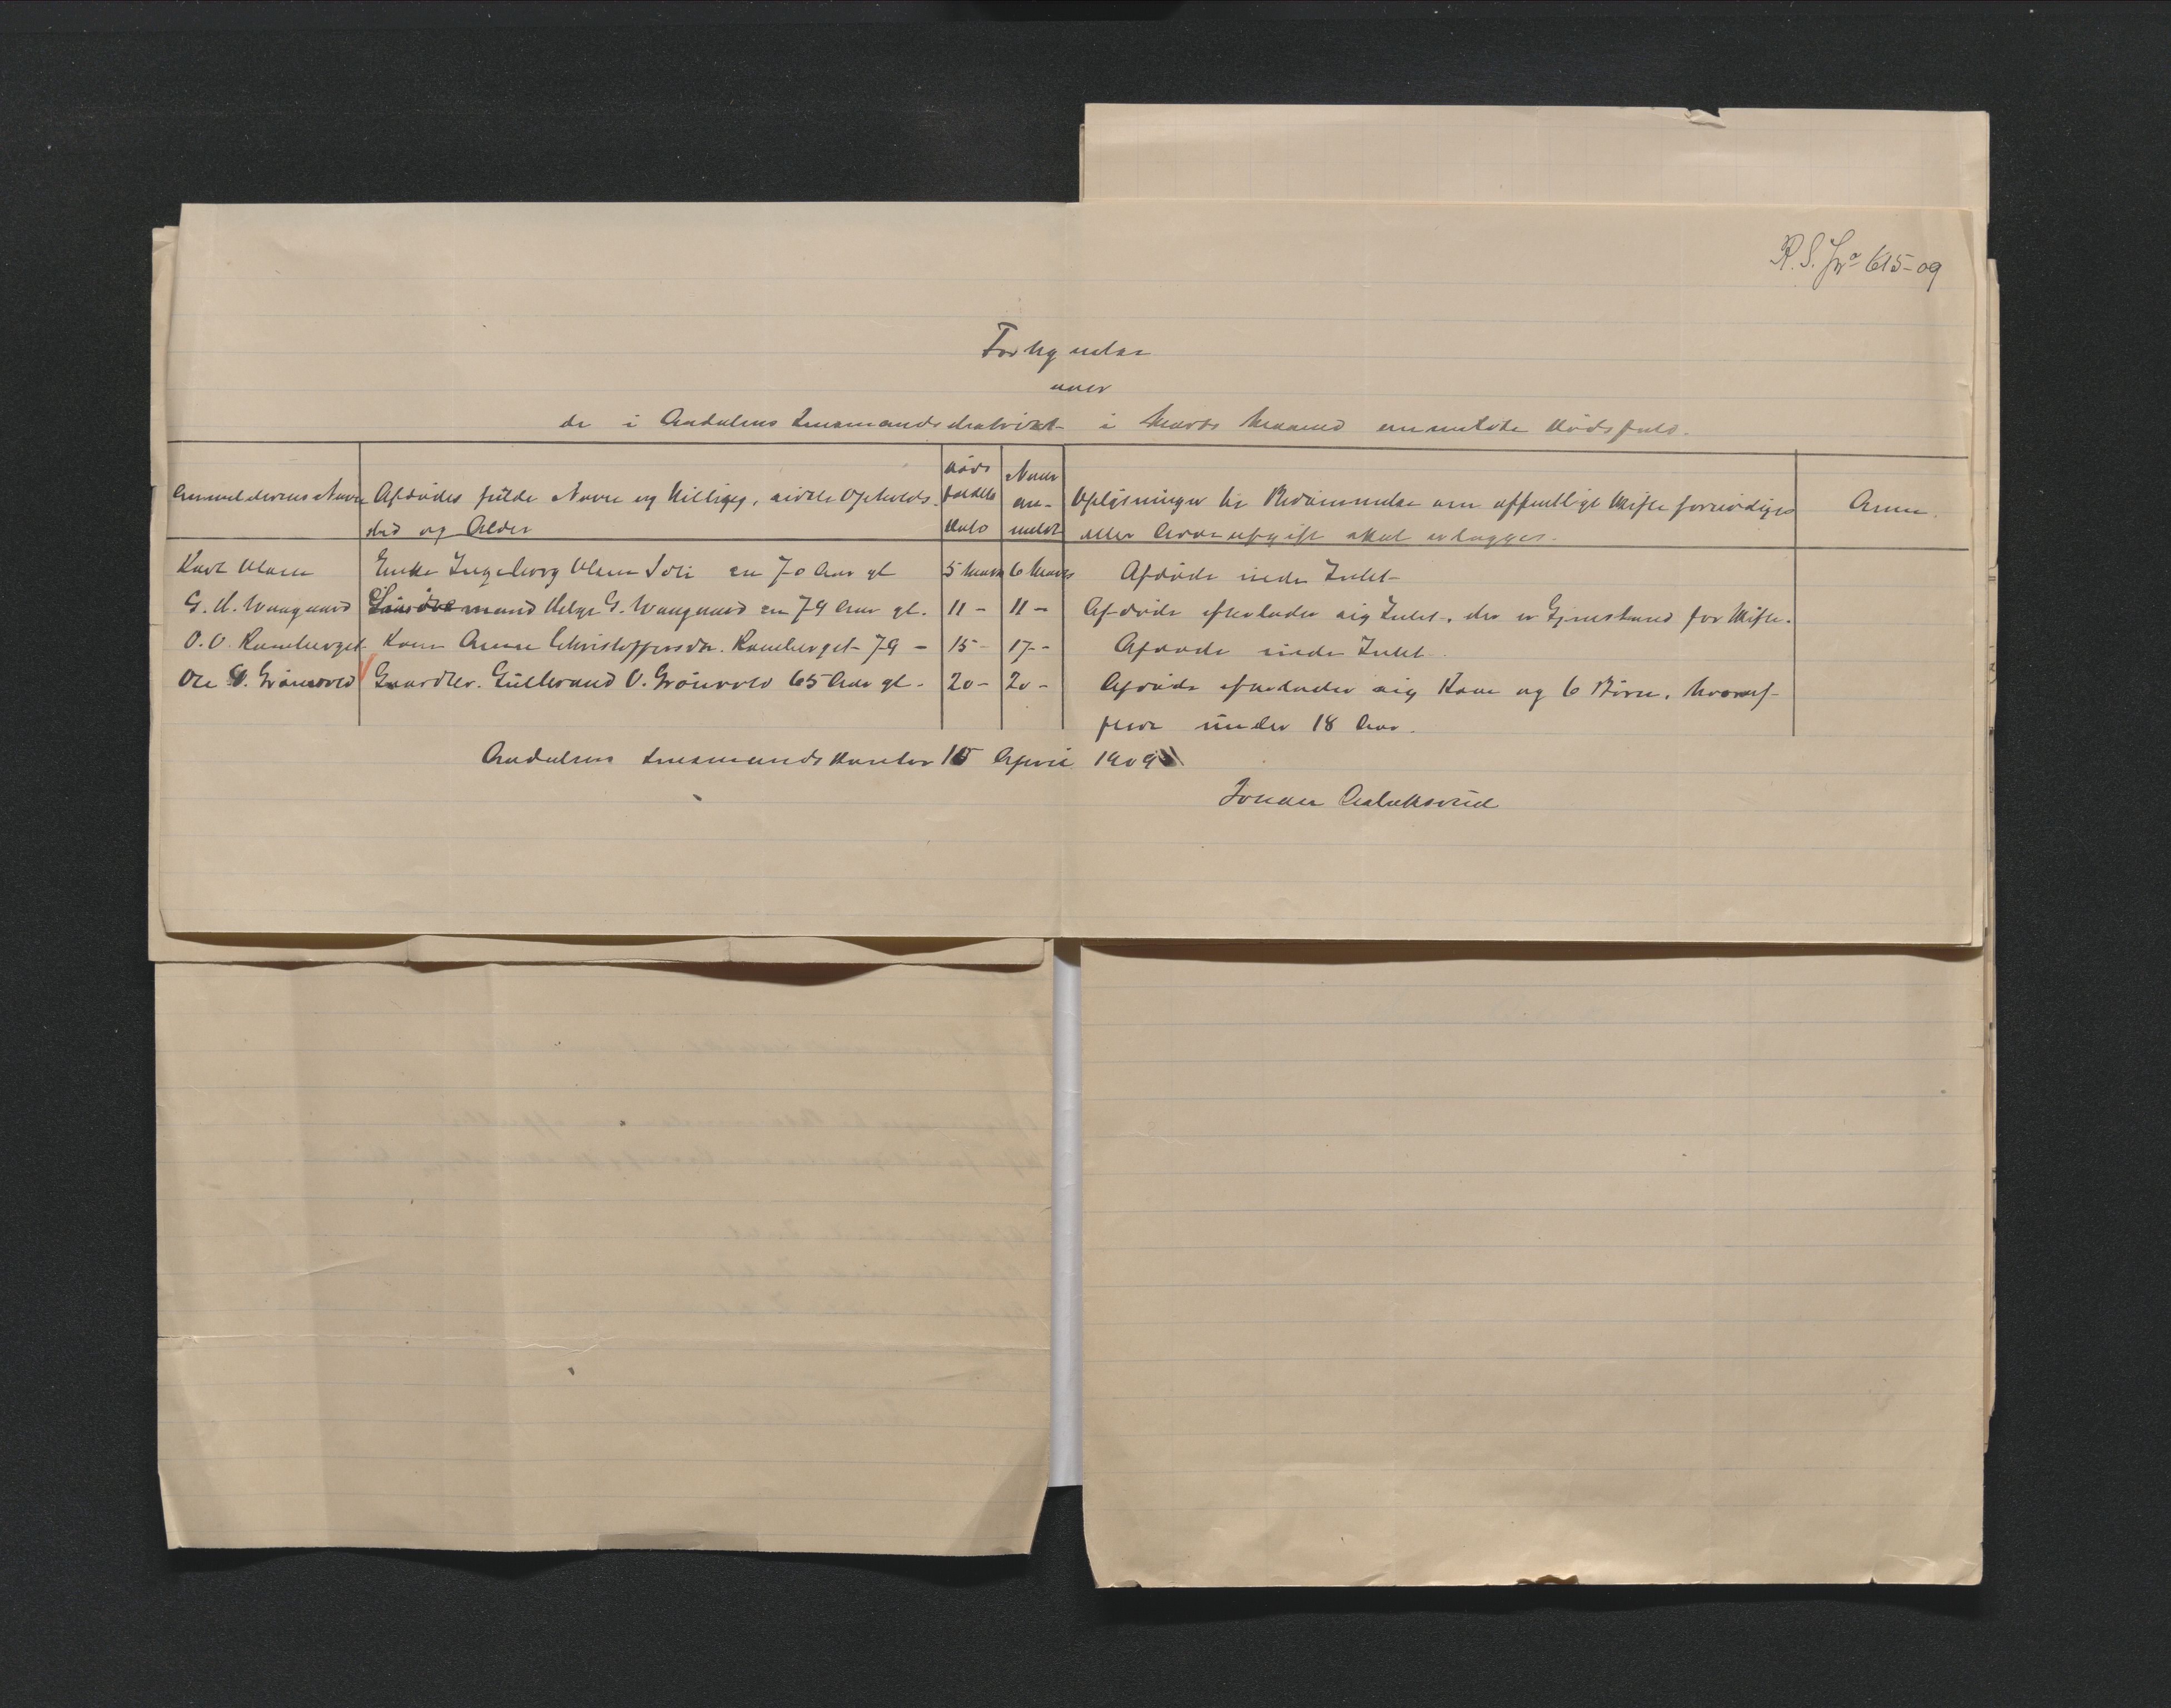 R. S. Jr 615-09
Fortegnelse
over
de i Aadalens Lensmandsdistrikt i Marts Maaned anmeldte Dødsfald.
Anmelderens Navn
Afdødes fulde Navn og Stilling, sidste Opholds-
sted og Alder
Døds
faldets
Dato
Naar
an-
meldt
Oplysninger til Bedømmelse om offentligt Skifte fornødiges
eller Arveafgift skal erlægges.
Anm.
Karl Olsen Enke Ingeborg Olsen Soli en 70 Aar gl 5 Marts 6 Marts Afdøde eiede Intet
G. H. Waagaard mand Helge G. Waagaard en 79 Aar gl. 11 - 11 - Afdøde efterlader sig Intet, der er Gjenstand for Skifte.
O. O. Ramberget Kone Anne Christoffersdr. Ramberget 79 - 15 - 17 - Afdøde eiede Intet
Ole G. Grønvold Gaardbr. Gulbrand O. Grønvold 65 Aar gl. 20 - 20 - Afdøde efterlader sig Kone og 6 Børn, hvoraf
flere under 18 Aar.
Aadalens Lensmandskontor 15 April 1909